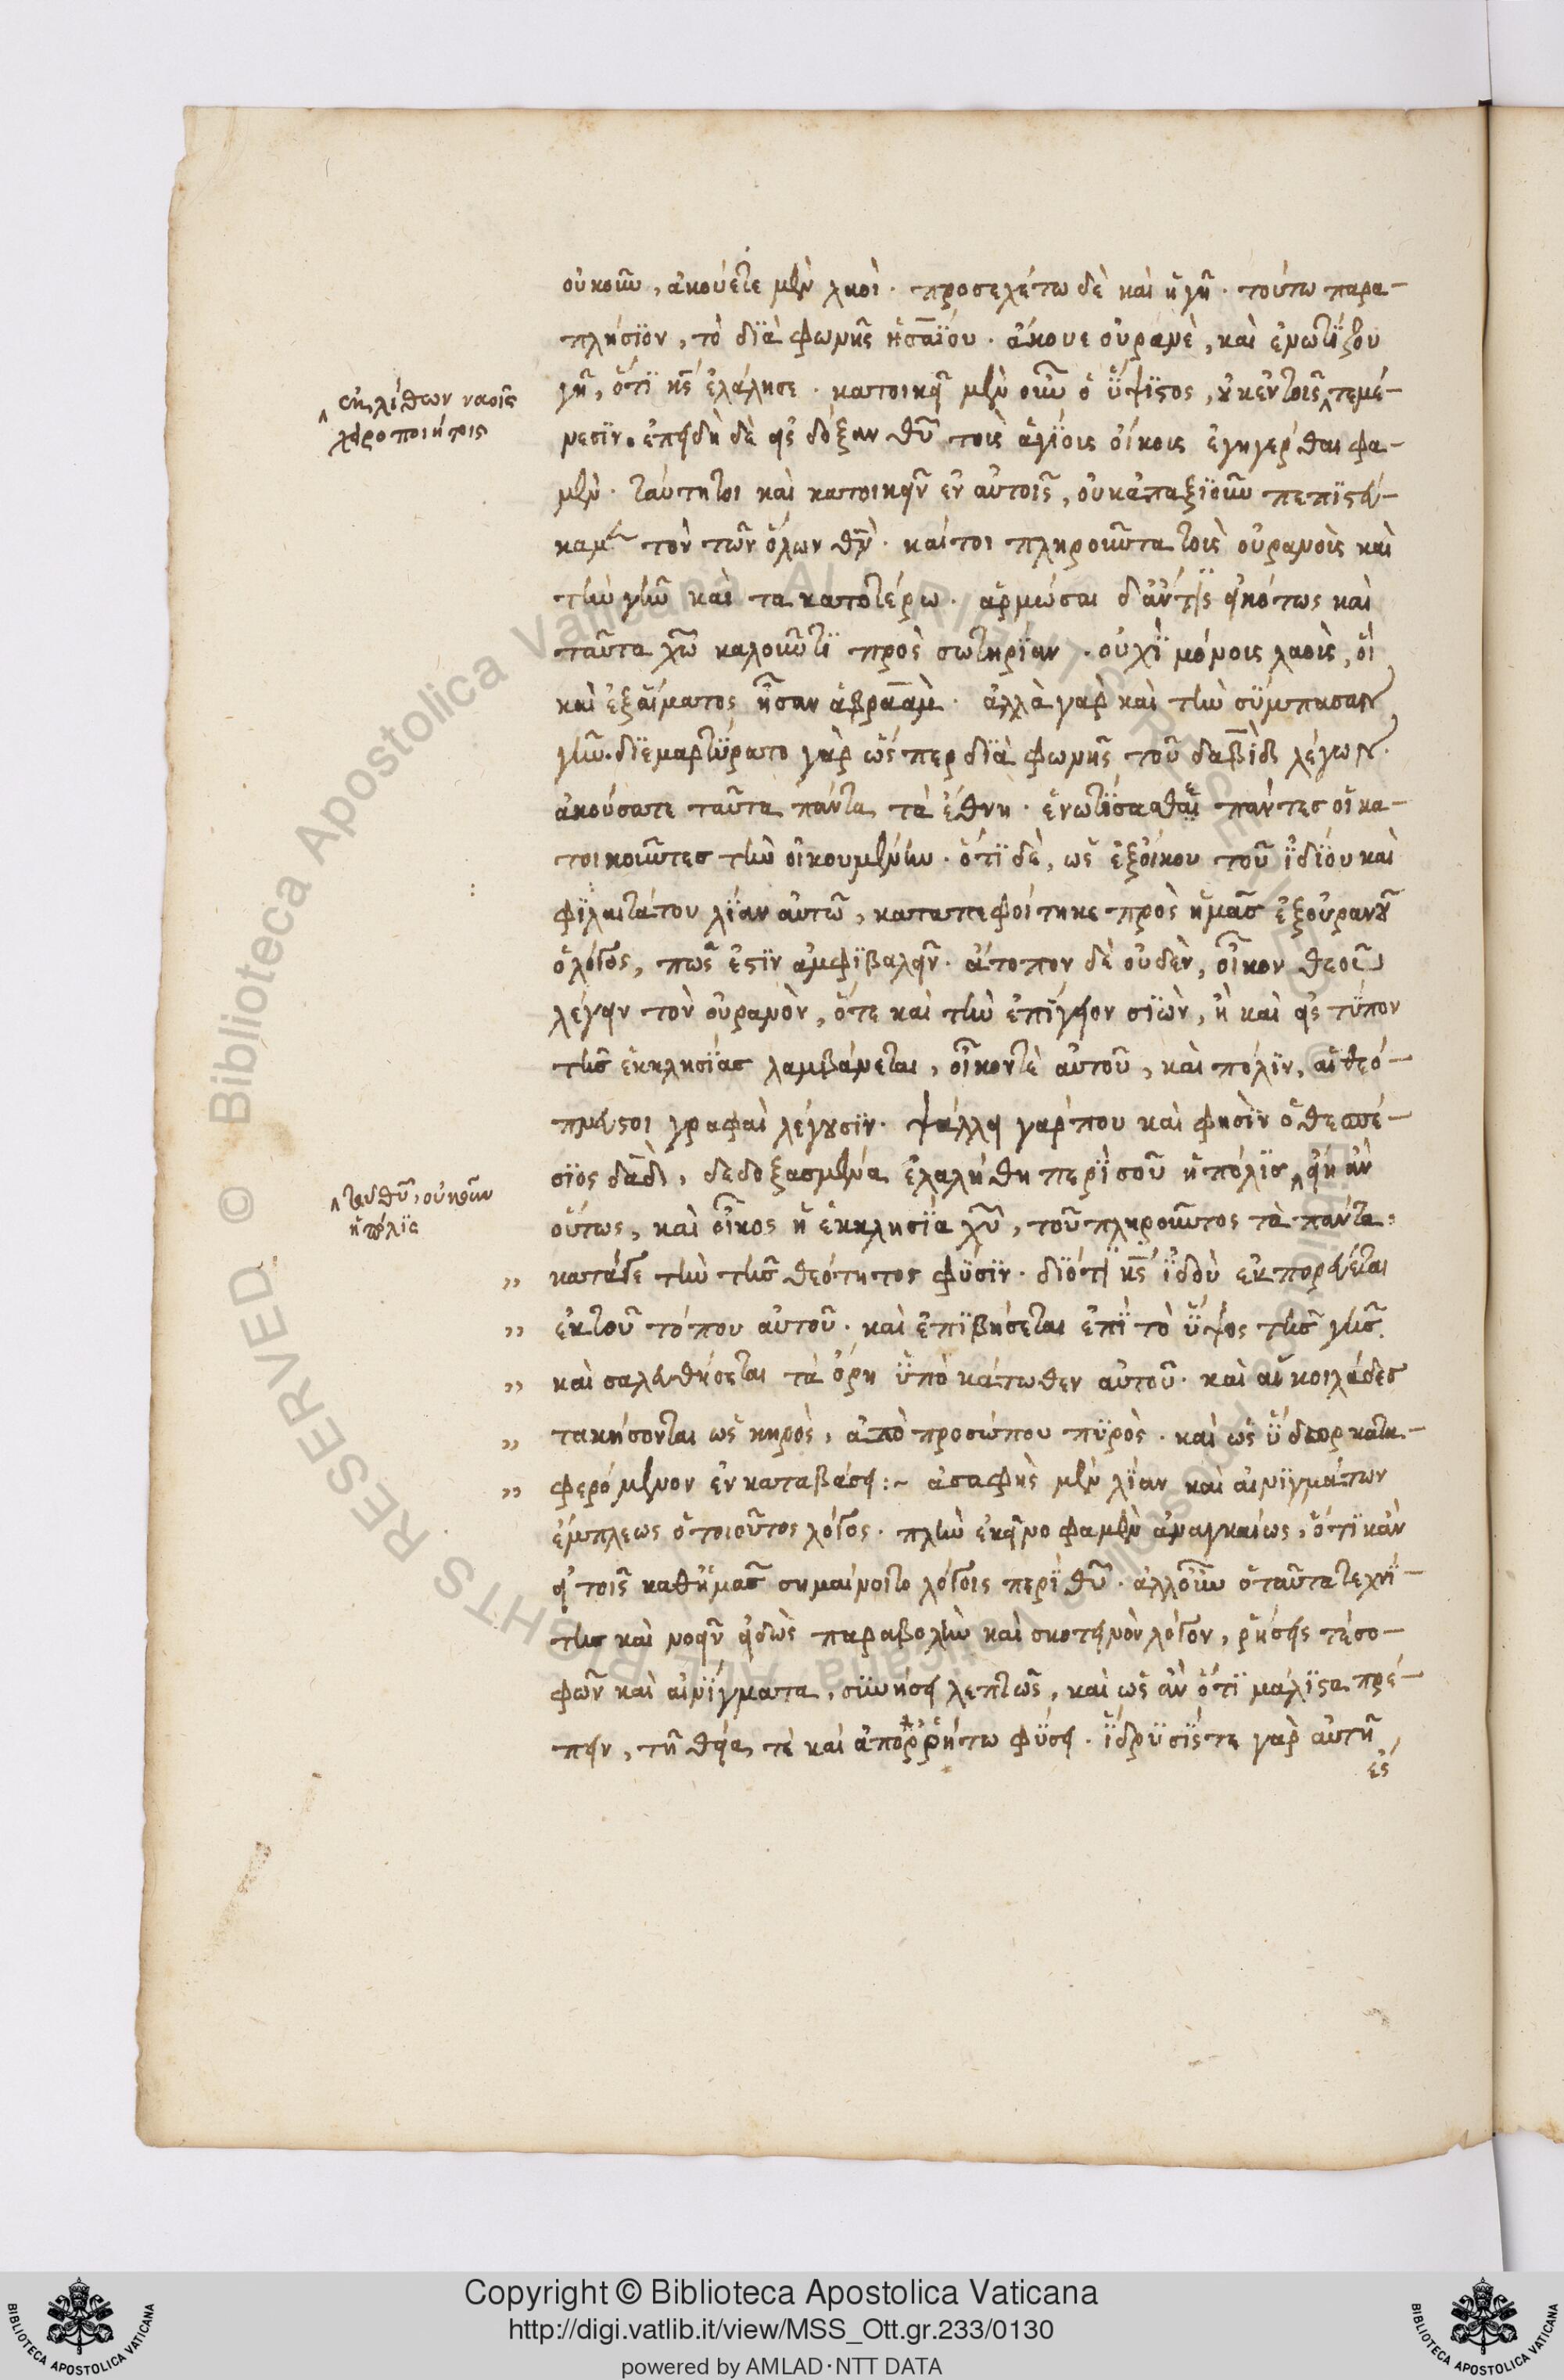 οὐκοῦν, ἀκούετε μὲν λαοὶ· προσεχέτω δὲ καὶ ἡ γῆ· τούτω παρα-
πλήσϊον, τὸ δϊὰ φωνῆς ἡσαΐου· ἄκουε οὐρανὲ, καὶ ἐνωτίζου
γῆ, ὅτϊ κς ἐλάλησε· κατοικεῖ μὲν οὖν ὁ ὕψϊστος, οὐκ ἐν τοῖς τεμέ-
νεσϊν. ἐπειδὴ δὲ εἰς δόξαν θυ τοὶς ἁγίοις οἴκοις ἐγηγέρθαι φα-
μὲν· ταύτητοι καὶ κατοικεῖν ἐν αὐτοῖς, οὐκ ἀπαξϊοῦν πεπϊστεύ-
καμεν τὸν τῶν ὅλων θν· καίτοι πληροῦντα τοὺς οὐρανοὺς καὶ
τὴν γῆν καὶ τα κατοτέρω· ἁρμόσαι δ' ἄν τϊς εἰκότως καὶ
ταῦτα χῶ καλοῦντϊ πρὸς σωτηρίαν· οὐχὶ μόνοις λαοὶς, οἳ
καὶ ἐξ αἵματος ἦσαν ἁβραὰμ· ἀλλὰ γὰρ καὶ τὴν σύμπασαν
γῆν. δϊεμαρτύρατο γὰρ ὥσπερ δϊὰ φωνῆς τοῦ δαβὶδ λέγων·
ἀκούσατε ταῦτα πάντα τὰ ἔθνη· ἐνωτίσασθαι πάντες οἱ κα-
τοικοῦντες τὴν οἰκουμένην· ὅτϊ δὲ, ὡς ἐξ οἴκου τοῦ ἰδίου καὶ
φϊλαιτάτου λίαν αὐτῶ, καταπεφοίτηκε πρὸς ἡμᾶς ἐξ οὐρανοῦ
ὁ λόγος, πῶς ἔστϊν ἀμφϊβαλεῖν· ἄτοπον δὲ οὐδὲν, οἶκον θεοῦ
λέγειν τὸν οὐρανὸν, ὅτε καὶ τὴν ἐπίγειον σϊὼν, ἣ καὶ εἰς τύπον
τῆς ἐκκλησίας λαμβάνεται, οἶκον τὲ αὐτοῦ, καὶ πόλϊν, αἱ θεό-
πνευστοι γραφαὶ λέγουσϊν· ψάλλει γάρ που καὶ φησὶν ὁ θεσπέ-
σϊος δαδ, δεδοξασμένα ἐλαλήθη περὶ σοῦ ἡ πόλϊς, εἴη ἂν
οὕτως, καὶ οἶκος ἡ ἐκκλησία χυ, τοῦ πληροῦντος τὰ πάντα,
κατάγε τὴν τῆς θεότητος φύσϊν· δϊότϊ κς ἰδοὺ ἐκπορεύεται
ἐκ τοῦ τόπου αὐτοῦ· καὶ ἐπϊβήσεται ἐπὶ τὸ ὕψος τῆς γῆς.
καὶ σαλευθήσεται τὰ ὄρη ὑποκάτωθεν αὐτοῦ· καὶ αἱ κοιλάδες
τακήσονται ὡς κηρὸς, ἀπὸ προσώπου πϋρὸς· καὶ ὡς ὕδωρ κατα-
φερόμενον ἐν καταβάσει:~ ἀσαφὴς μὲν λίαν καὶ αἰνϊγμάτων
ἔμπλεως ὁ τοιοῦτος λόγος· πλὴν ἐκεῖνο φαμὲν ἀναγκαίως, ὅτϊ κἂν
εἰ τοῖς καθ' ἡμᾶς σημαίνοιτο λόγοις περὶ θυ· ἀλλ' οὖν ὁ ταῦτα τεχνί-
της καὶ νοεῖν εἰδὼς παραβολὴν καὶ σκοτεινὸν λόγον, ῥήσεις τέ σο-
φῶν καὶ αἰνίγματα, σϋνήσει λεπτῶς, καὶ ὡς ἂν ὅτϊ μάλϊστα πρέ-
πειν, τῆ θεία τὲ καὶ ἀπορρήτω φύσει· ἵδρϋσίς τε γὰρ αὐτῆ
εἰς
ἐκ λίθων ναοῖς
χειροποιήτοις
τοῦ θυ, οὐκοῦν
ἡ πόλϊς
Copyright © Biblioteca Apostolica Vaticana
http://digi.vatlib.it/view/MSS_Ott.gr.233/0130
powered by AMLAD·NTT DATA
BIBLIOTECA APOSTOLICA VATICANA
BIBLIOTECA APOSTOLICA VATICANA